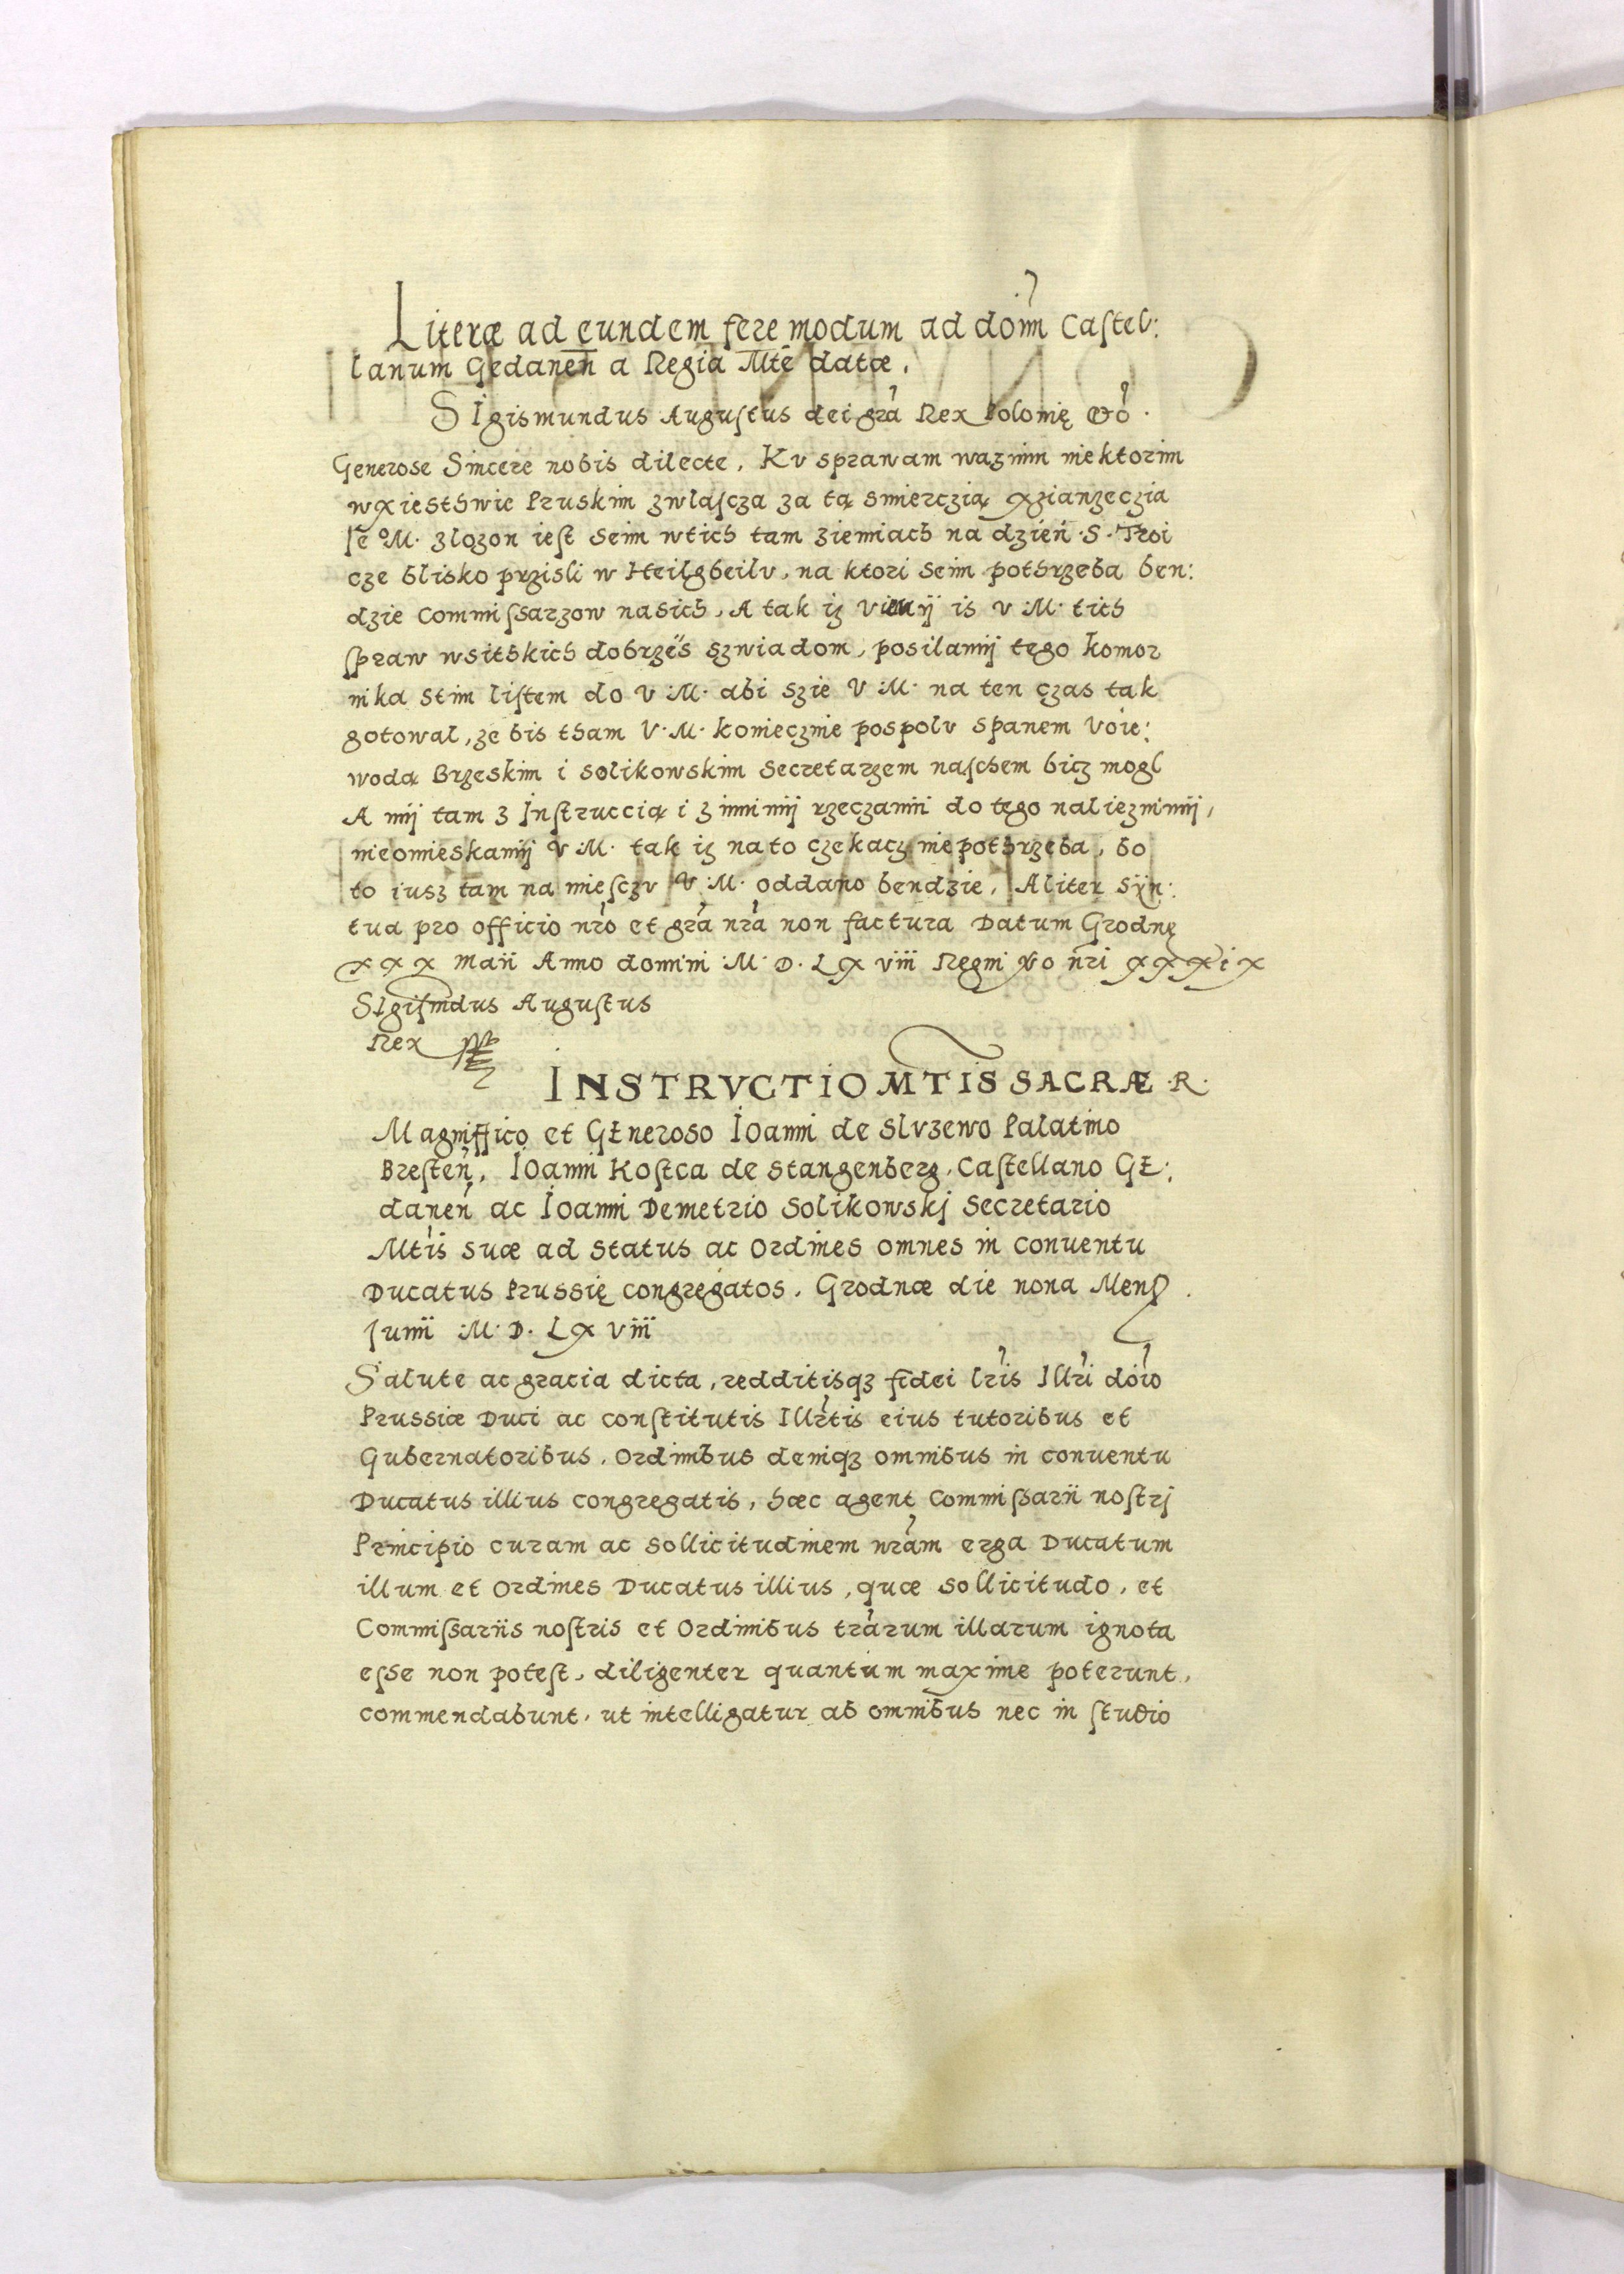 Literæ ad eundem fere modum ad doim Castel:
lanum Gedanen a Regia Mte datæ.
SIgismundus Augustus dei gra Rex Polonię etc.
Generose Sincere nobis dilecte, Kv sprawam waznim niektorim
wxiesthwie Pruskim zwlascza za tą smierczią xzianzeczia
Je° M. zlozon iest seim wtich tam ziemiach na dzień S. Troi
cze blisko przisli w Heilgbeilv, na ktori seim pothrzeba ben:
dzie Commissarzow nasich, A tak iz viemÿ is v M. tich
spraw wsitskich dobrzes szwiadom, posilamÿ tego komor
nika stim listem do V M. abi szie V M. na ten czas tak
gotowal, ze bis tham V. M. koniecznie pospolv spanem Voie:
wodą Brzeskim i solikowskim Secretarzem naschem bicz mogl
A mÿ tam z Instruccią i z innimÿ rzeczamÿ do tego nalieznimÿ,
nieomieskamÿ V M. tak iz na to czekacz niepothrzeba, bo
to iusz tam na miesczv V M. oddano bendzie, Aliter Sÿn:
tua pro officio nro et gra nra non factura Datum Grodnę
xxx Maii Anno domini M. D. Lx viii Regni vo nri xxxix
SIgismdus Augustus
Rex
INSTRVCTIO MTIS SACRÆ R.
Magniffico et GEneroso Ioanni de Slvzewo Palatino
Bresten, Ioanni Kostca de Stangenberg, Castellano GE:
danen ac Ioanni Demetrio Solikowskj Secretario
Mtis suæ ad Status ac Ordines omnes in Conuentu
Ducatus Prussię congregatos, Grodnæ die nona Mens
Junii M. D. Lx viii
Salute ac gracia dicta, redditisqz fidei lris Illri doio
Prussiæ Duci ac constitutis Illrtis eius tutoribus et
Gubernatoribus, Ordinibus deniqz omnibus in conuentu
Ducatus illius congregatis, hæc agent Commissarii nostrj
Principio curam ac sollicitudinem nram erga Ducatum
illum et Ordines Ducatus illius, quæ sollicitudo, et
Commissariis nostris et Ordinibus trarum illarum ignota
esse non potest, diligenter quantum maxime poterunt,
commendabunt, ut intelligatur ab omnibus nec in studio